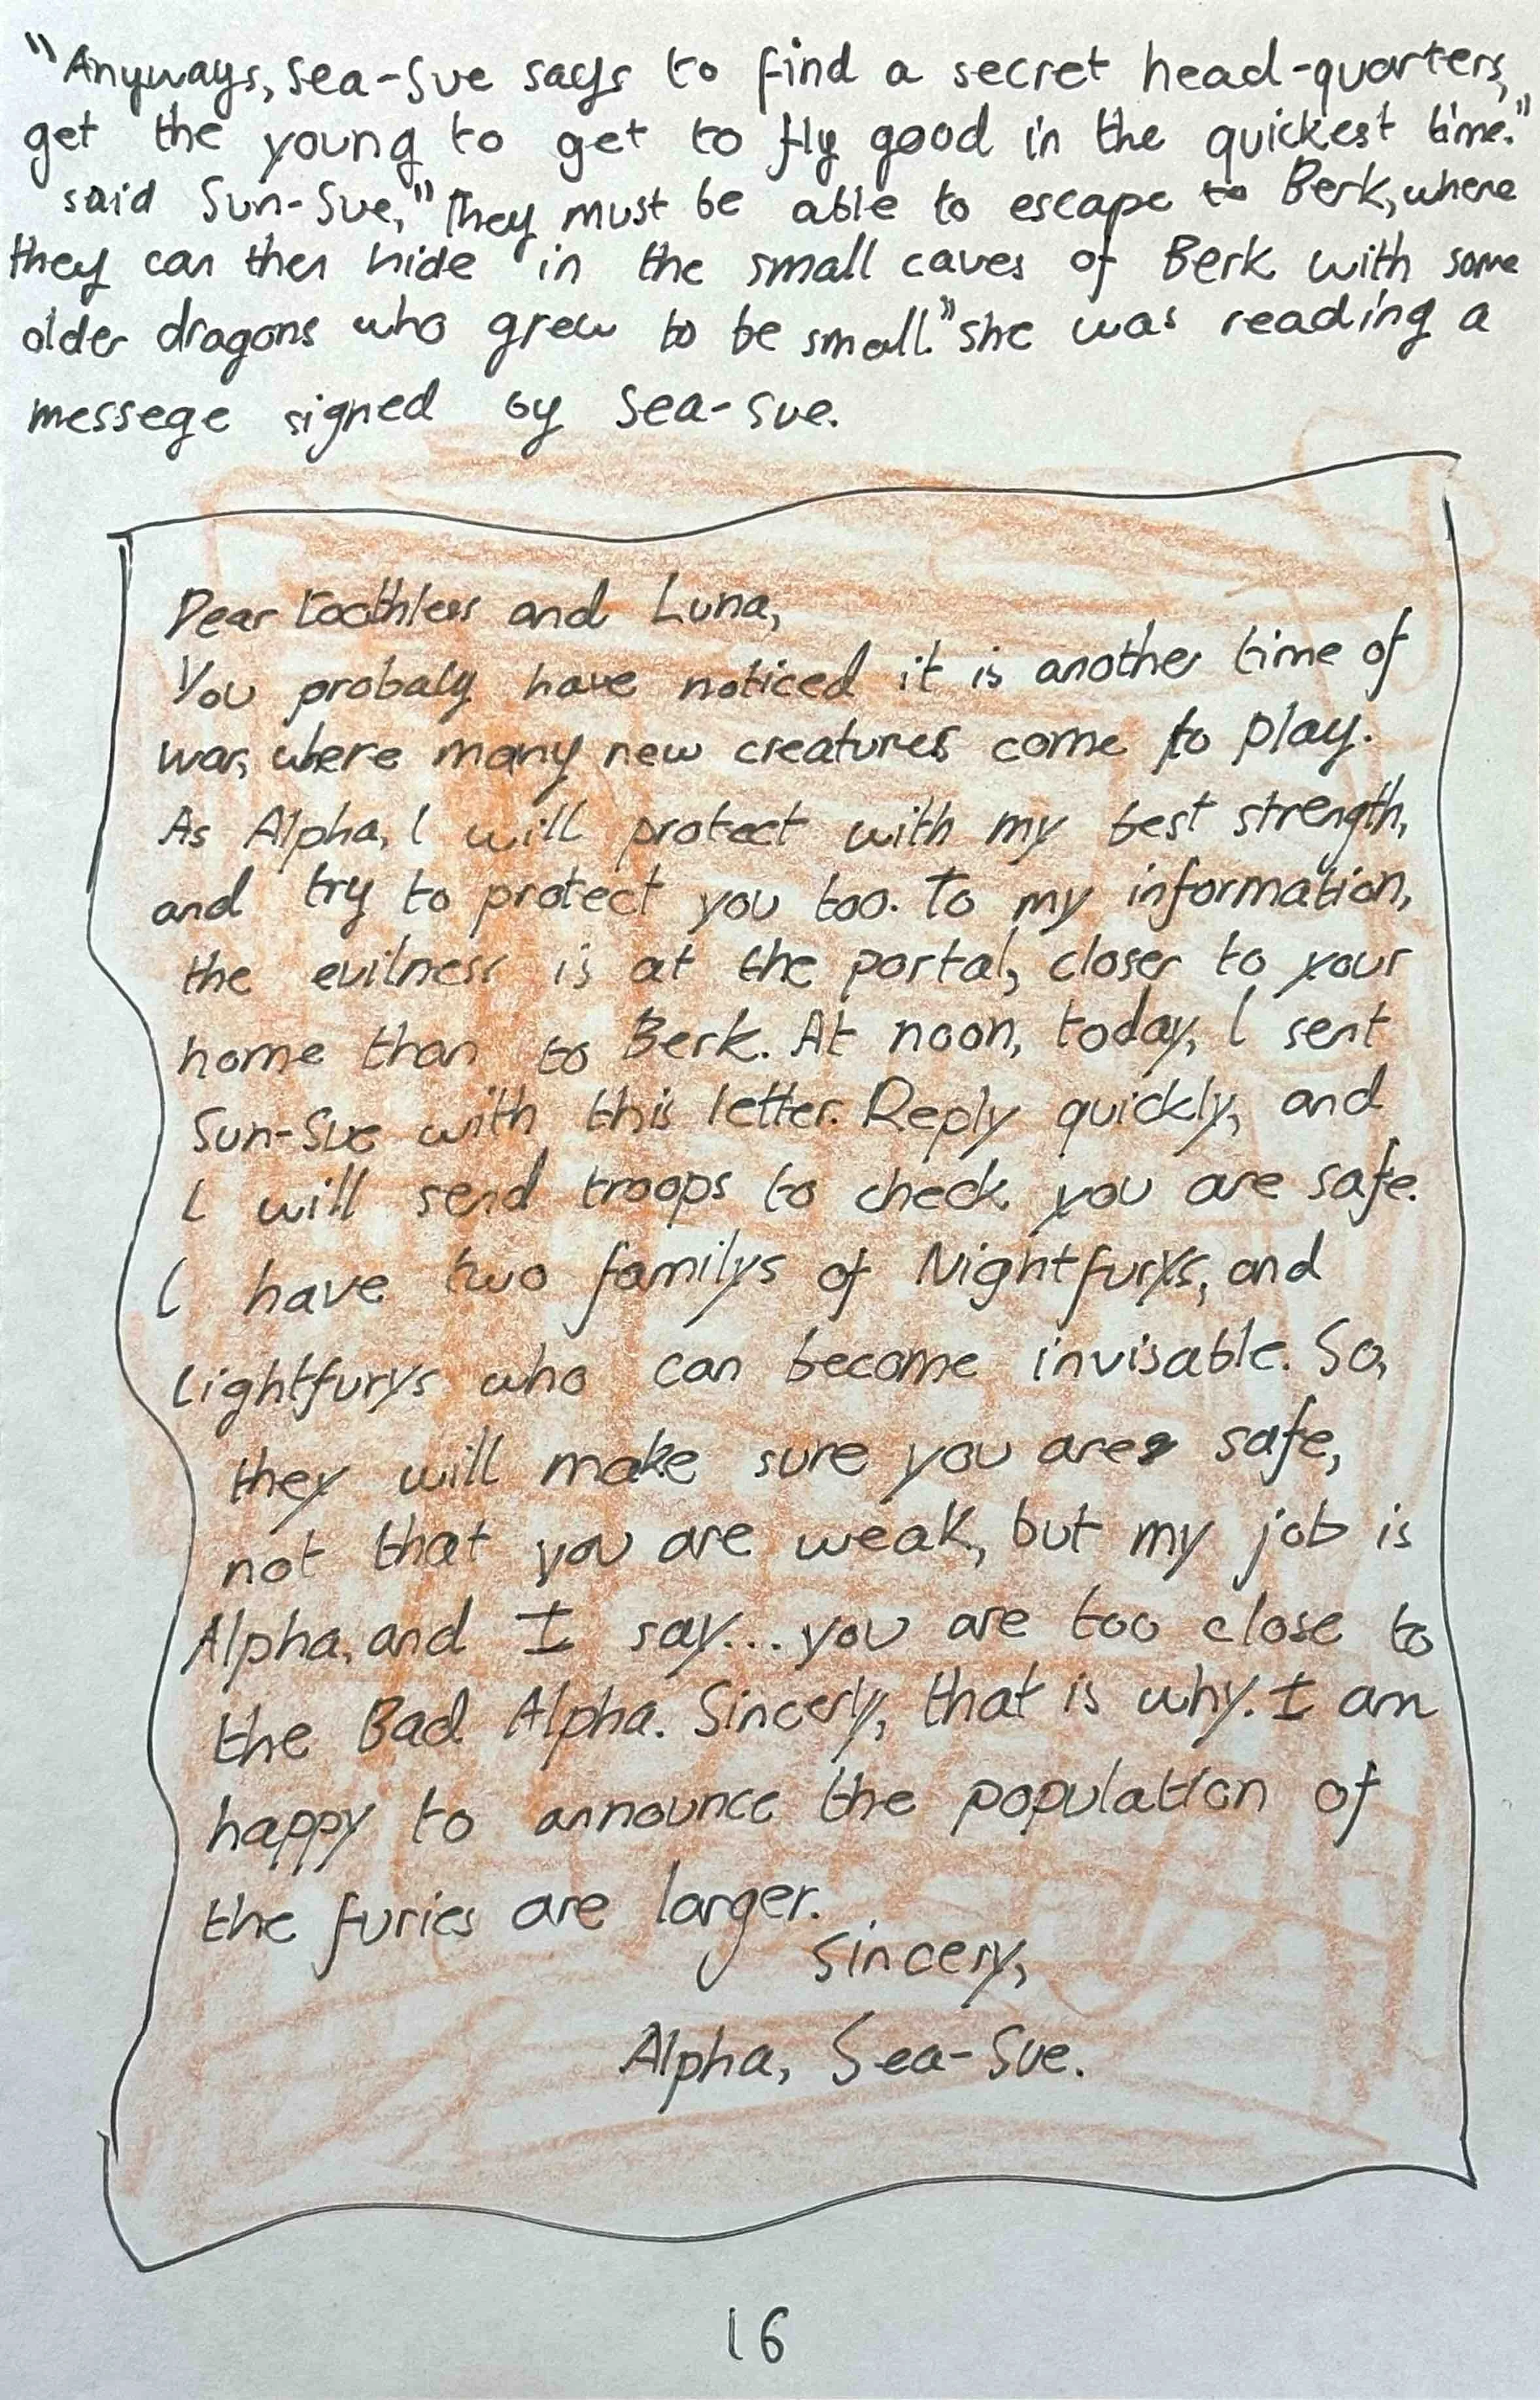 "Anyways, Sea-Sue says to find a secret head-quarters,
get the young to get to fly good in the quickest time."
said Sun-Sue, "They must be able to escape to Berk, where
they can then hide in the small caves of Berk with some
older dragons who grew to be small." she was reading a
messege signed by Sea-Sue.
Dear toothless and Luna,
You probaly have noticed it is another time of
war, where many new creatures come to play.
As Alpha, I will protect with my best strength,
and try to protect you too. To my information,
the evilness is at the portal, closer to your
home than to Berk. At noon, today, I sent
Sun-Sue with this letter. Reply quickly, and
I will send troops to check you are safe.
I have two familys of Nightfurys, and
Lightfurys who can become invisable. So,
they will make sure you are safe,
not that you are weak, but my job is
Alpha, and I say... you are too close to
the Bad Alpha. Sincerly, that is why. I am
happy to announce the population of
the furies are larger.
Sincery,
Alpha, Sea-Sue.
16